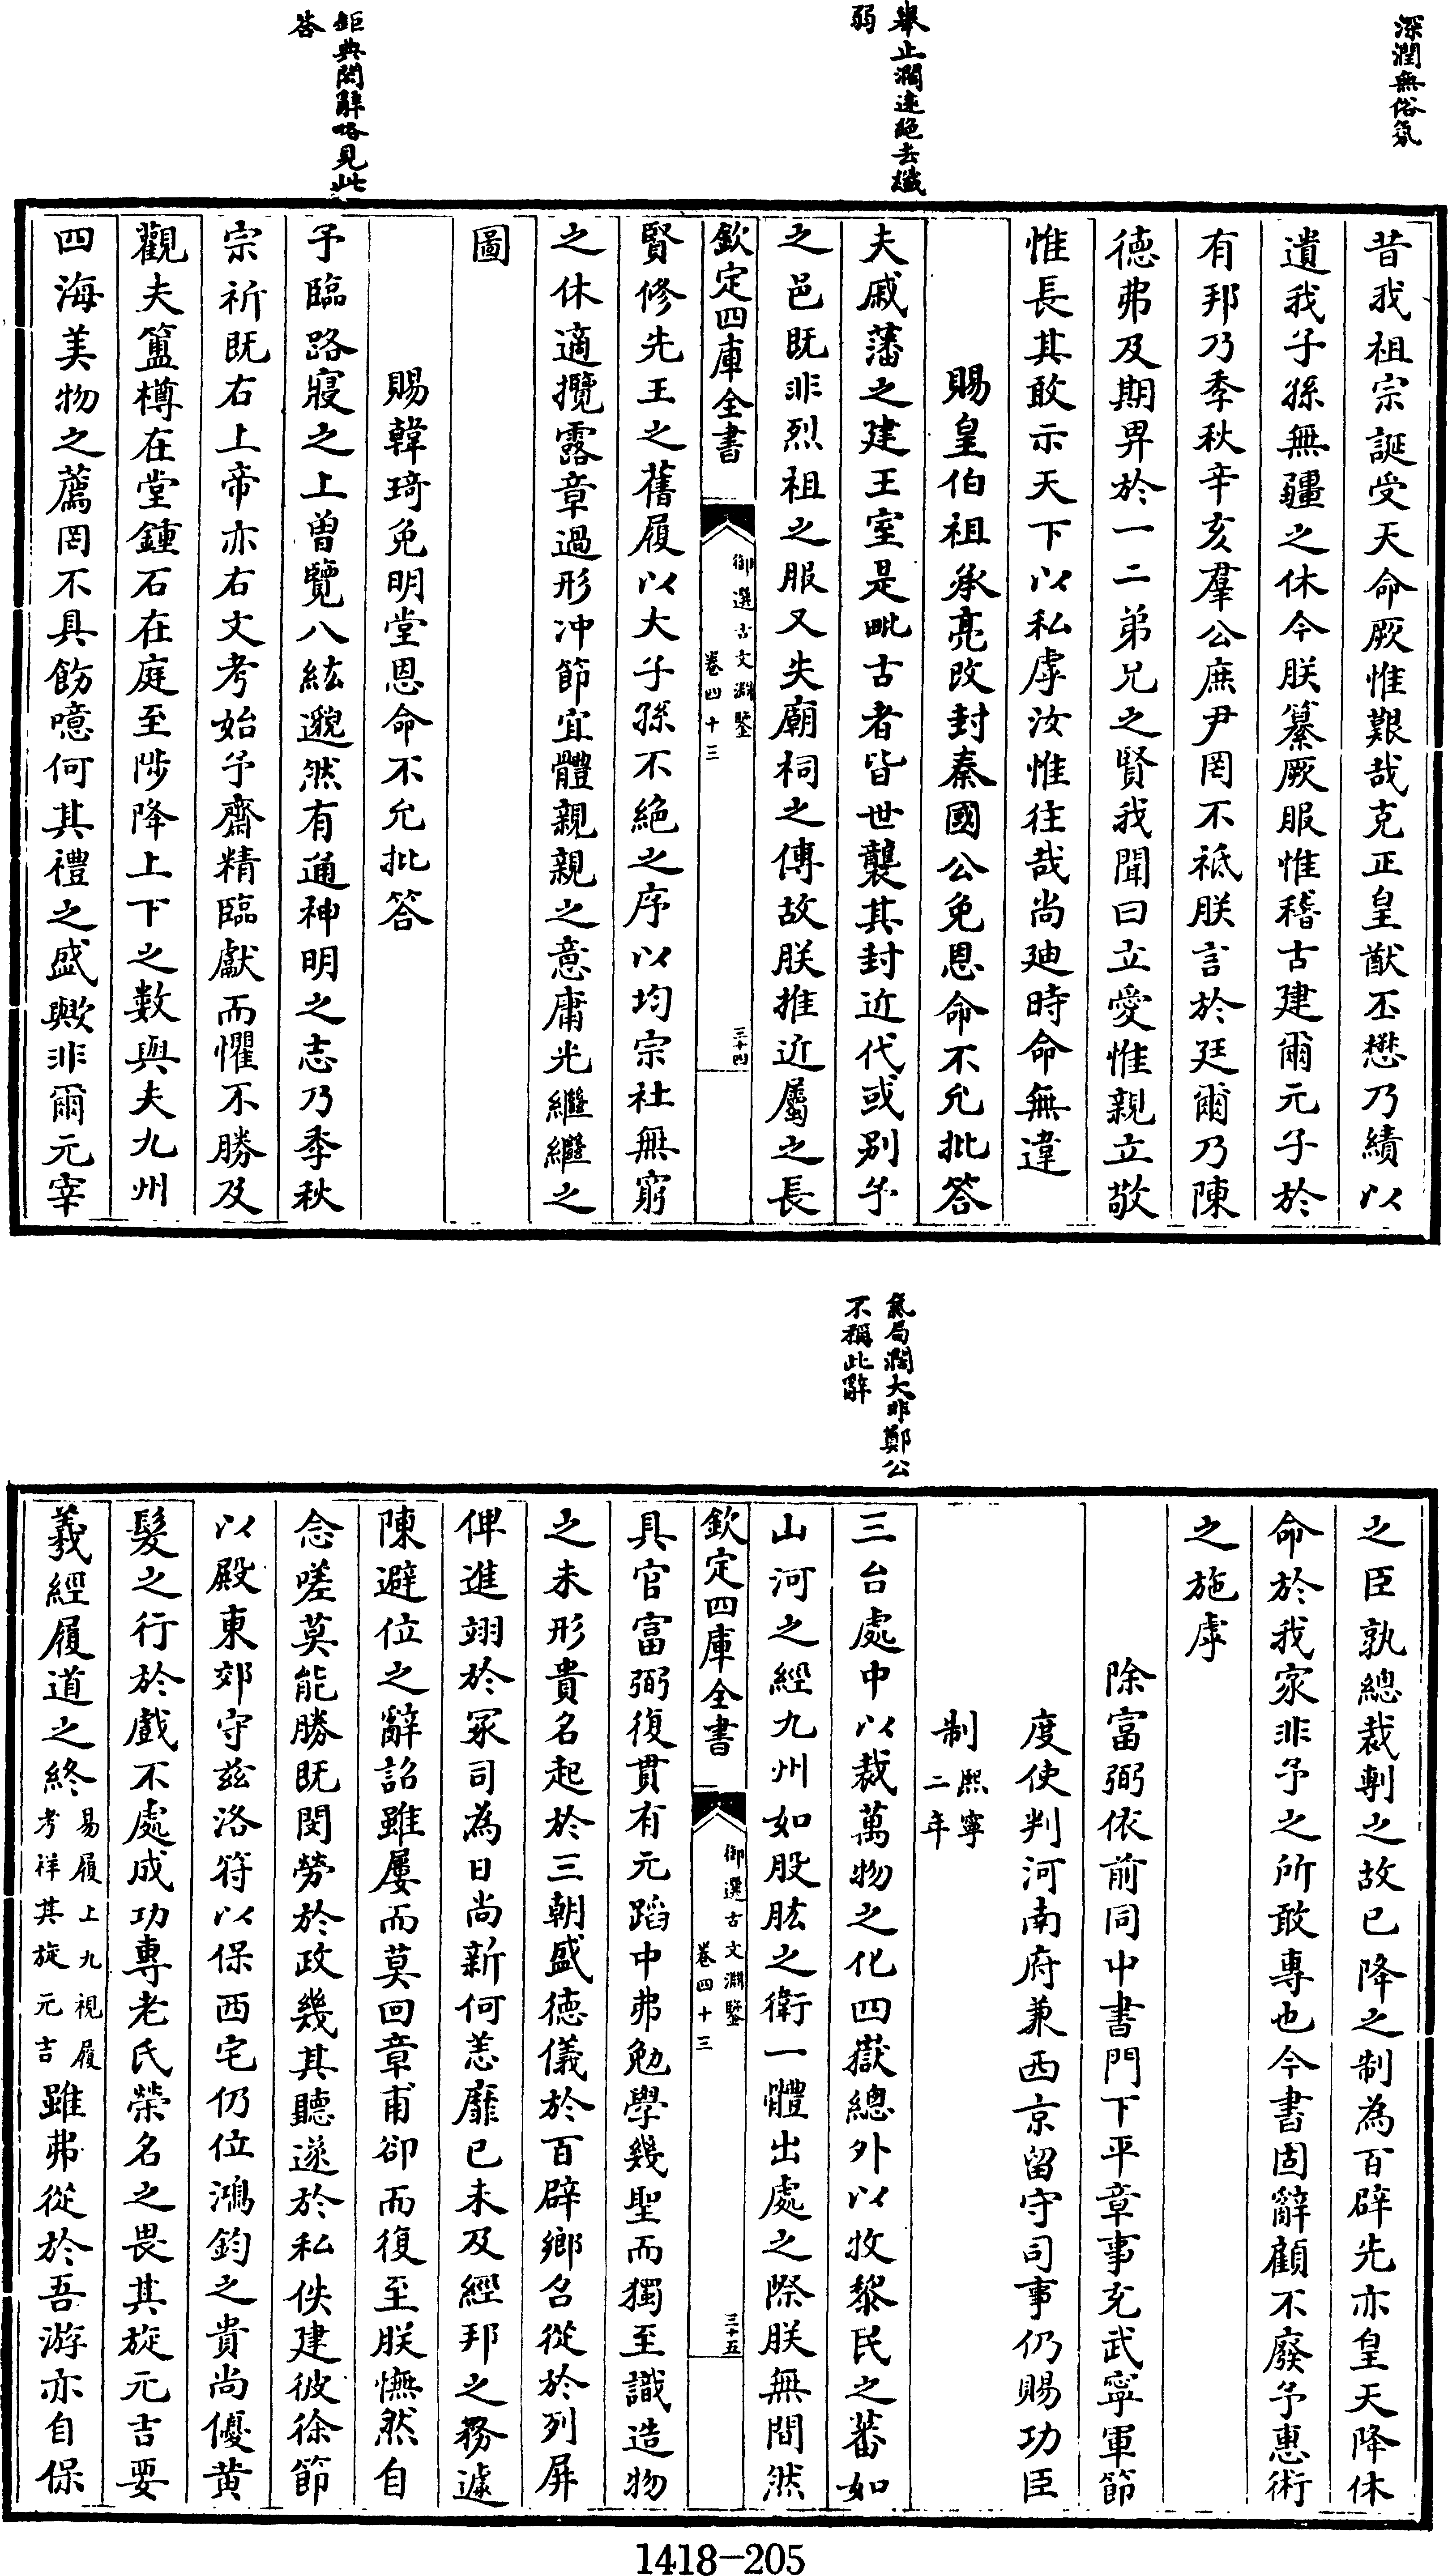 深潤無俗氛
昔我祖宗誕受天命厥惟艱哉克正皇猷丕懋乃績以
遺我子孫無疆之休今朕纂厥服惟稽古建爾元子於
有邦乃季秋辛亥羣公庶尹罔不祗朕言於廷爾乃陳
德弗及期畀於一二弟兄之賢我聞曰立愛惟親立敬
惟長其敢示天下以私虖汝惟往哉尚廸時命無違
賜皇伯祖承亮改封秦國公免恩命不允批答
舉止濶逺絶去纎
弱
夫戚藩之建王室是毗古者皆世襲其封近代或别予
之邑既非烈祖之服又失廟祠之傳故朕推近屬之長
欽定四庫全書
御選古文淵鑒
卷四十三
三十四
賢修先王之舊履以大子孫不絶之序以均宗社無窮
之休適攬露章過形冲節宜體親親之意庸光繼繼之
圖
賜韓琦免明堂恩命不允批答
鉅典閎辭略見此
答
予臨路寢之上曽覽八紘邈然有通神明之志乃季秋
宗祈既右上帝亦右文考始予齋精臨獻而懼不勝及
觀夫簠樽在堂鍾石在庭至陟降上下之數與夫九州
四海美物之薦罔不具飭噫何其禮之盛歟非爾元宰
之臣孰總裁剸之故已降之制為百辟先亦皇天降休
命於我家非予之所敢專也今書固辭顧不廢予惠術
之施虖
除富弼依前同中書門下平章事充武寧軍節
度使判河南府兼西京留守司事仍賜功臣
制熙寧
二年
氣局濶大非鄭公
不稱此辭
三台處中以裁萬物之化四嶽總外以牧黎民之蕃如
山河之經九州如股肱之衛一體出處之際朕無間然
欽定四庫全書
御選古文淵鑒
卷四十三
三十五
具官富弼復貫有元蹈中弗勉學幾聖而獨至識造物
之未形貴名起於三朝盛德儀於百辟鄉召從於列屏
俾進翊於冢司為日尚新何恙靡已未及經邦之務遽
陳避位之辭詔雖屢而莫回章甫卻而復至朕憮然自
念嗟莫能勝既閔勞於政幾其聽遂於私佚建彼徐節
以殿東郊守兹洛符以保西宅仍位鴻鈞之貴尚優黄
髮之行於戲不處成功專老氏榮名之畏其旋元吉要
羲經履道之終易履上九視履考祥其旋元吉雖弗從於吾游亦自保
1418-205